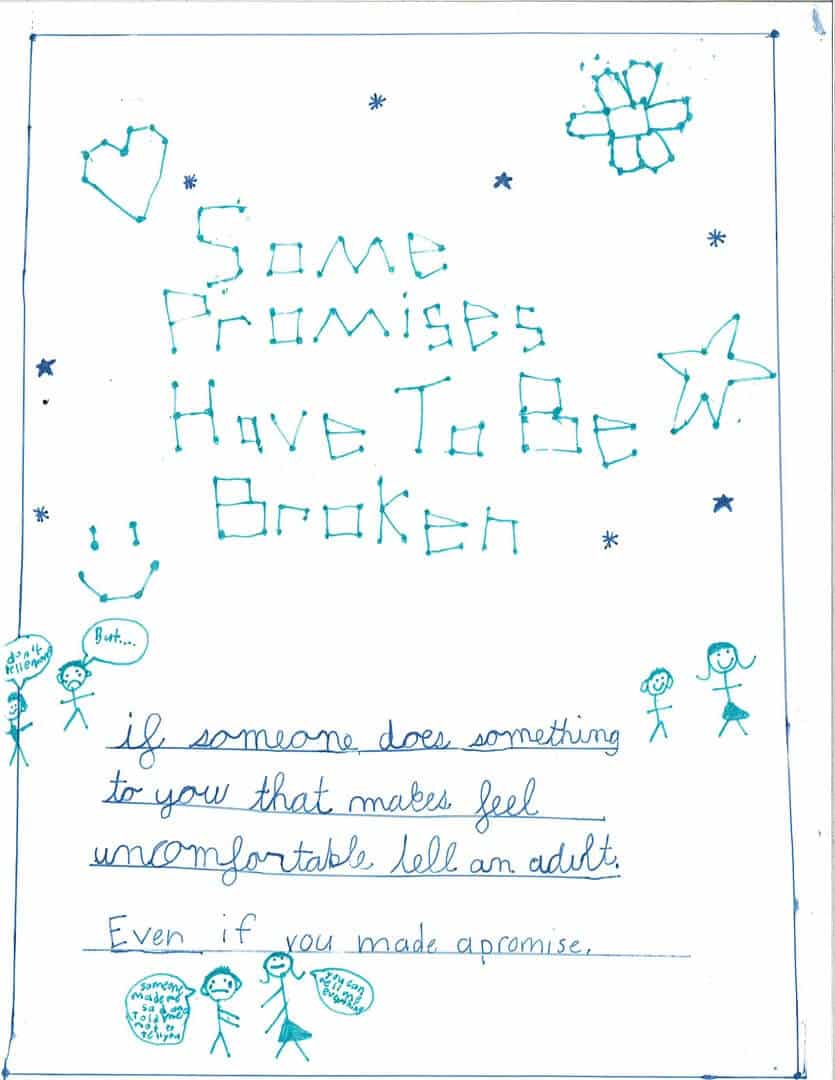 Some
Promises
Have To Be
Broken
don't
tell
But....
if someone does something
to you that makes feel
uncomfortable tell an adult.
Even if you made apromise.
someone
made me
sad and
told me
not to
tell you
you can
tell me
everything